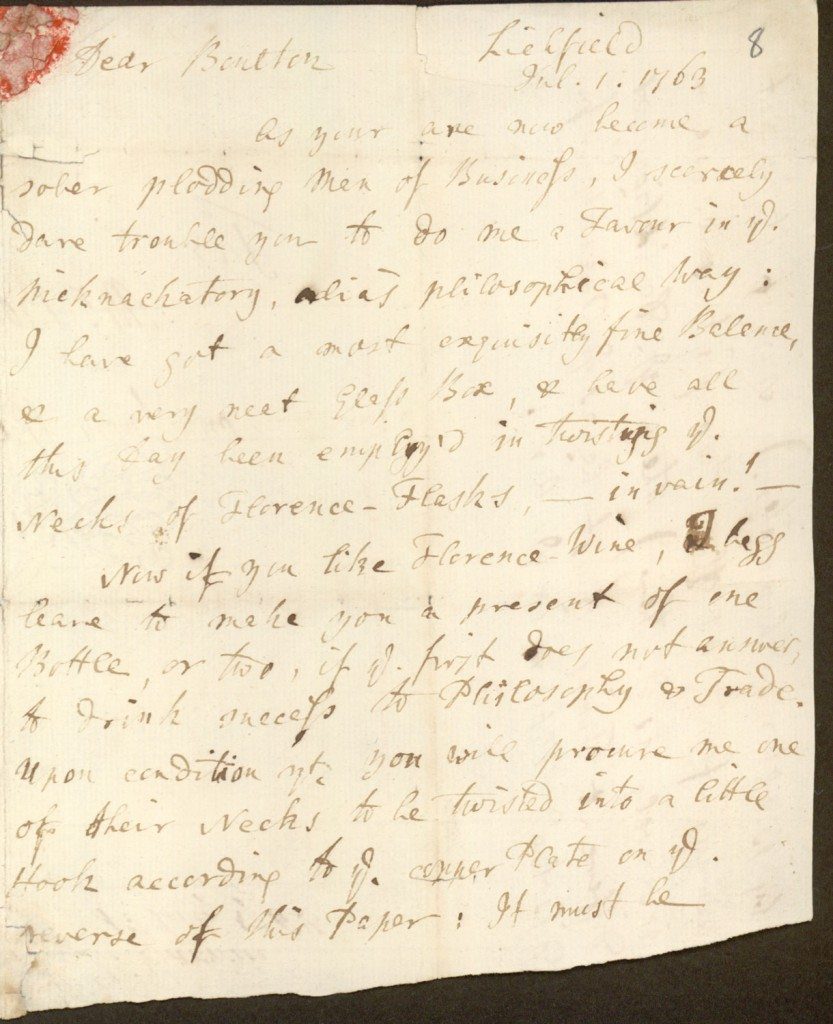 8
Lichfield
Dear Boulton
Jul. 1. 1763
As your are now become a
sober plodding Man of Business, I scarcely
Dare trouble you to do me a Favour in ye.
Nicknackatory, alias philosophical Way:
I have got a most exquisitly fine Balance,
& a very neat Glass Box, & have all
this day been employ'd in twisting ye.
Necks of Florence-Flasks, — in vain! —
Now if you like Florence-Wine, I begg
leave to make you a present of one
Bottle, or two, if ye. first does not answer,
to drink success to Philosophy & Trade.
Upon condition yt. you will procure me one
of their Necks to be twisted into a little
Hook according to ye. copper Plate on ye.
reverse of this Paper: It must be